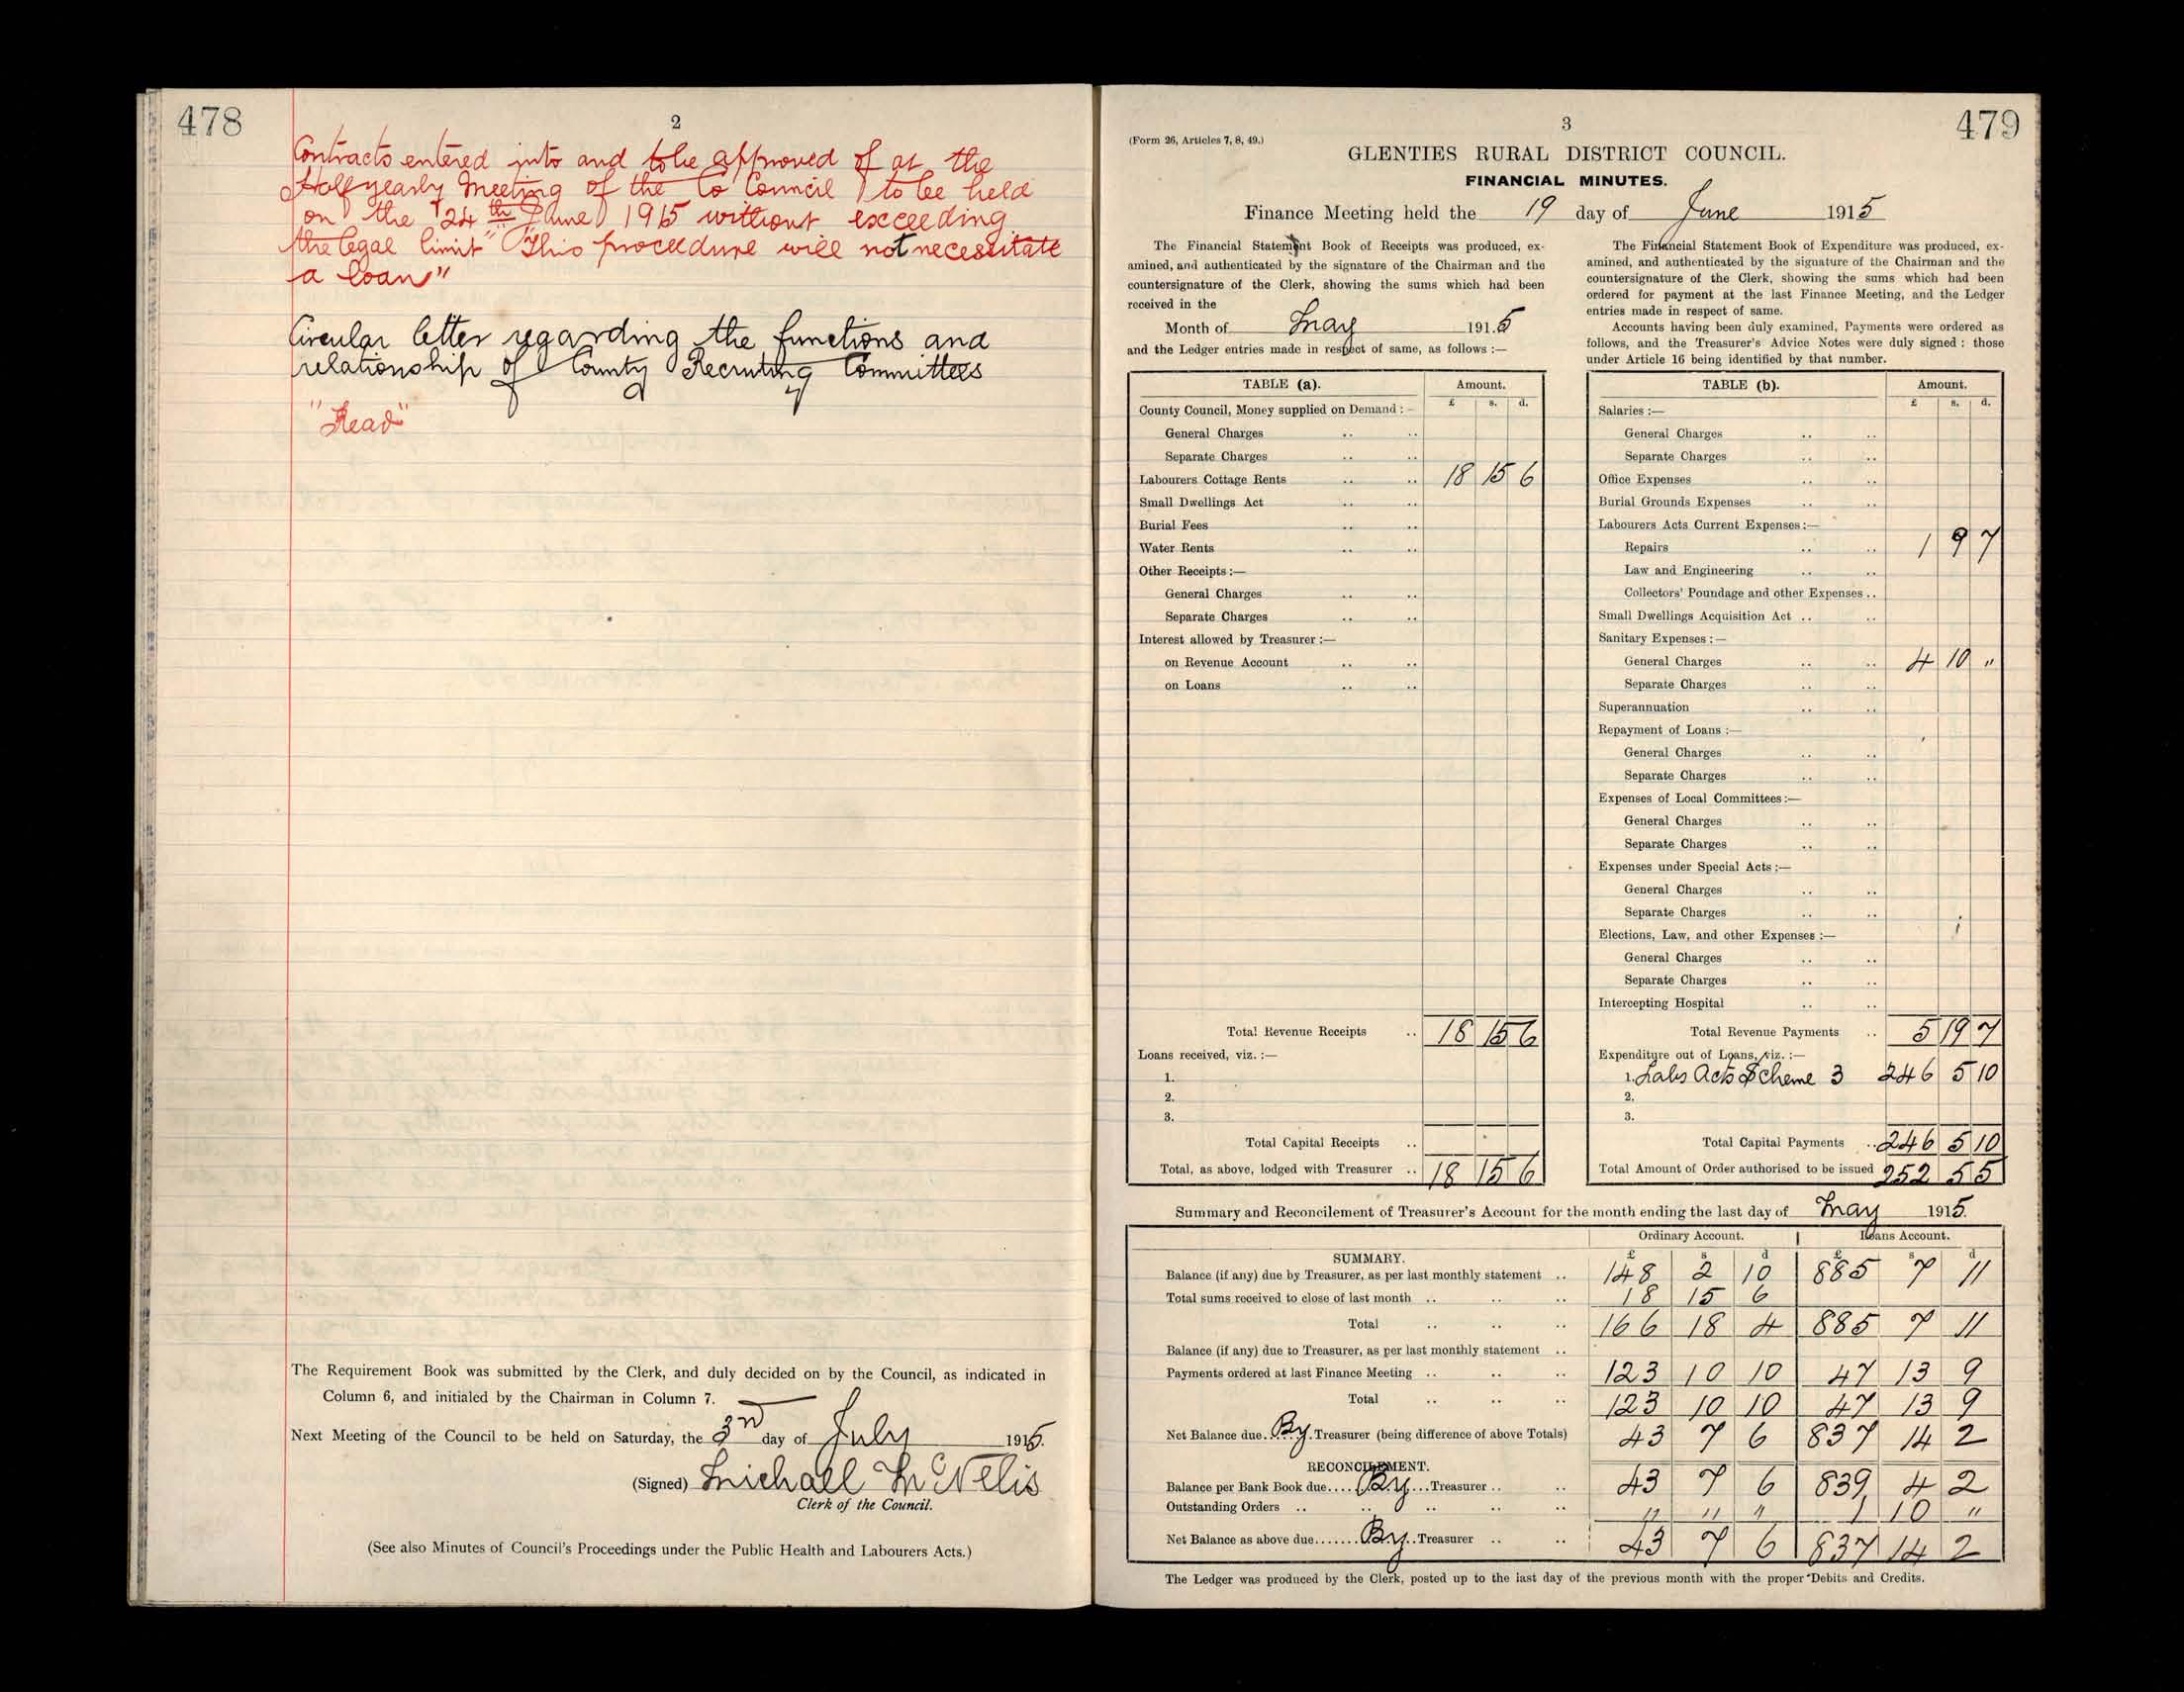 478
2
Contracts entered into and to be approved of at the
Half yearly Meeting of the Co Council to be held
on the 24th June 1915 without exceeding
the legal limit" "This procedure will not necessitate
a loan"
Circular letter regarding the functions and
relationship of County Recruiting Committees
"Read"
The Requirement Book was submitted by the Clerk, and duly decided on by the Council, as indicated in
Column 6, and initialed by the Chairman in Column 7.
Next Meeting of the Council to be held on Saturday, the 3rd day of July 1915.
(Signed) Michael McNelis
Clerk of the Council.
(See also Minutes of Council's Proceedings under the Public Health and Labourers Acts.)
3
479
(Form 26, Articles 7, 8, 49.)
GLENTIES RURAL DISTRICT COUNCIL.
FINANCIAL MINUTES.
Finance Meeting held the 19 day of June 1915
The Financial Statement Book of Receipts was produced, ex-
amined, and authenticated by the signature of the Chairman and the
countersignature of the Clerk, showing the sums which had been
received in the
Month of May 1915
and the Ledger entries made in respect of same, as follows :—
TABLE (a). Amount.
£ s. d.
County Council, Money supplied on Demand :—
General Charges .. ..
Separate Charges .. ..
Labourers Cottage Rents .. .. 18 15 6
Small Dwellings Act .. ..
Burial Fees .. ..
Water Rents .. ..
Other Receipts :—
General Charges .. ..
Separate Charges .. ..
Interest allowed by Treasurer :—
on Revenue Account .. ..
on Loans .. ..
Total Revenue Receipts .. 18 15 6
Loans received, viz. :—
1.
2.
3.
Total Capital Receipts ..
Total, as above, lodged with Treasurer .. 18 15 6
The Financial Statement Book of Expenditure was produced, ex-
amined, and authenticated by the signature of the Chairman and the
countersignature of the Clerk, showing the sums which had been
ordered for payment at the last Finance Meeting, and the Ledger
entries made in respect of same.
Accounts having been duly examined, Payments were ordered as
follows, and the Treasurer's Advice Notes were duly signed : those
under Article 16 being identified by that number.
TABLE (b). Amount.
£ s. d.
Salaries :—
General Charges .. ..
Separate Charges .. ..
Office Expenses .. ..
Burial Grounds Expenses .. ..
Labourers Acts Current Expenses :—
Repairs .. .. 1 9 7
Law and Engineering .. ..
Collectors' Poundage and other Expenses ..
Small Dwellings Acquisition Act .. ..
Sanitary Expenses :—
General Charges .. .. 4 10 "
Separate Charges .. ..
Superannuation .. ..
Repayment of Loans :—
General Charges .. ..
Separate Charges .. ..
Expenses of Local Committees :—
General Charges .. ..
Separate Charges .. ..
Expenses under Special Acts :—
General Charges .. ..
Separate Charges .. ..
Elections, Law, and other Expenses :—
General Charges .. ..
Separate Charges .. ..
Intercepting Hospital .. ..
Total Revenue Payments .. 5 19 7
Expenditure out of Loans, viz. :—
1. Labs Acts Scheme 3 246 5 10
2.
3.
Total Capital Payments .. 246 5 10
Total Amount of Order authorised to be issued 252 5 5
Summary and Reconcilement of Treasurer's Account for the month ending the last day of May 1915.
Ordinary Account. Loans Account.
SUMMARY. £ s d £ s d
Balance (if any) due by Treasurer, as per last monthly statement .. 148 2 10 885 7 11
Total sums received to close of last month .. .. .. 18 15 6
Total .. .. .. 166 18 4 885 7 11
Balance (if any) due to Treasurer, as per last monthly statement ..
Payments ordered at last Finance Meeting .. .. .. 123 10 10 47 13 9
Total .. .. .. 123 10 10 47 13 9
Net Balance due..By..Treasurer (being difference of above Totals) 43 7 6 837 14 2
RECONCILEMENT.
Balance per Bank Book due....By...Treasurer .. .. 43 7 6 839 4 2
Outstanding Orders .. .. .. .. .. " " " 1 10 "
Net Balance as above due.......By..Treasurer .. .. 43 7 6 837 14 2
The Ledger was produced by the Clerk, posted up to the last day of the previous month with the proper Debits and Credits.